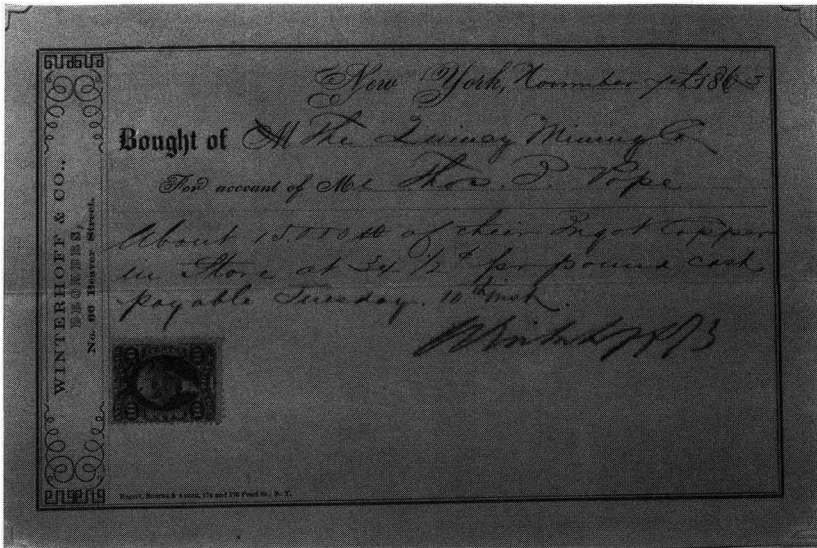 WINTERHOFF & CO.,
BROKERS,
No. 69 Beaver Street.
New York, November 7th 1863
Bought of M The Quincy Mining Co
For account of Mr Thos. J. Pope
About 15.000 lb of their Ingot Copper
in Store at 34 1/2 ¢ per pound cash
payable Tuesday. 10th inst.
10 10
U.S.
10 10
N.Y.